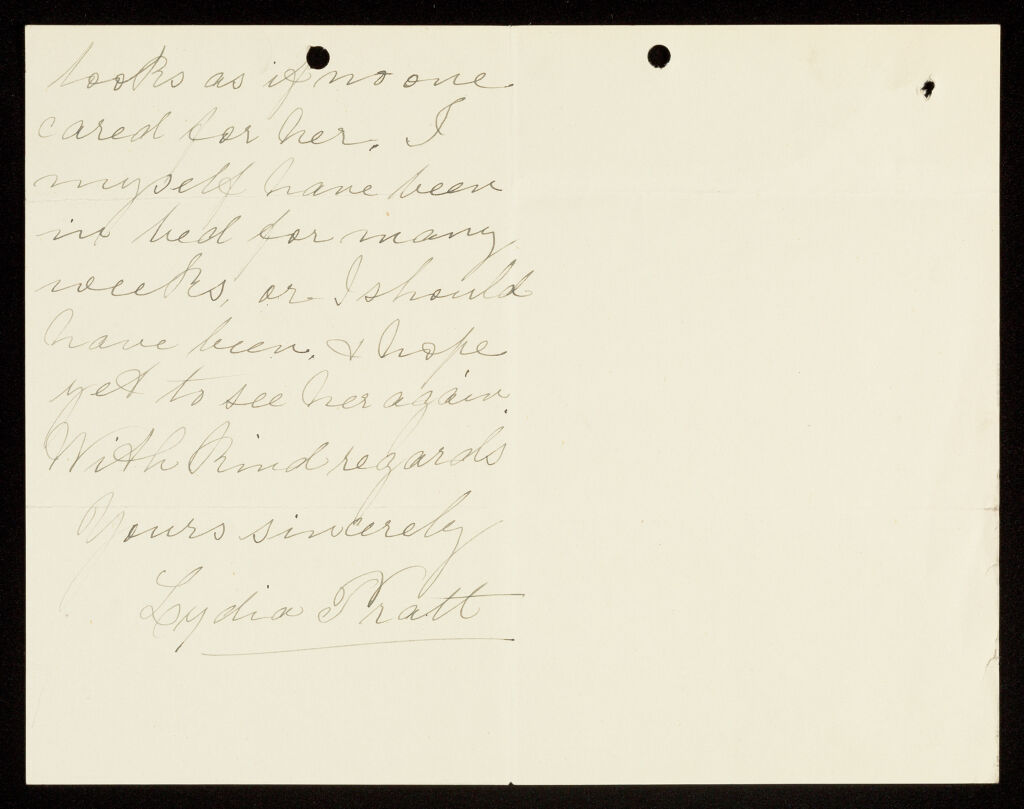 looks as if no one
cared for her. I
myself have been
in bed for many
weeks, or I should
have been, & hope
yet to see her again.
With kind regards
Yours sincerely
Lydia Pratt